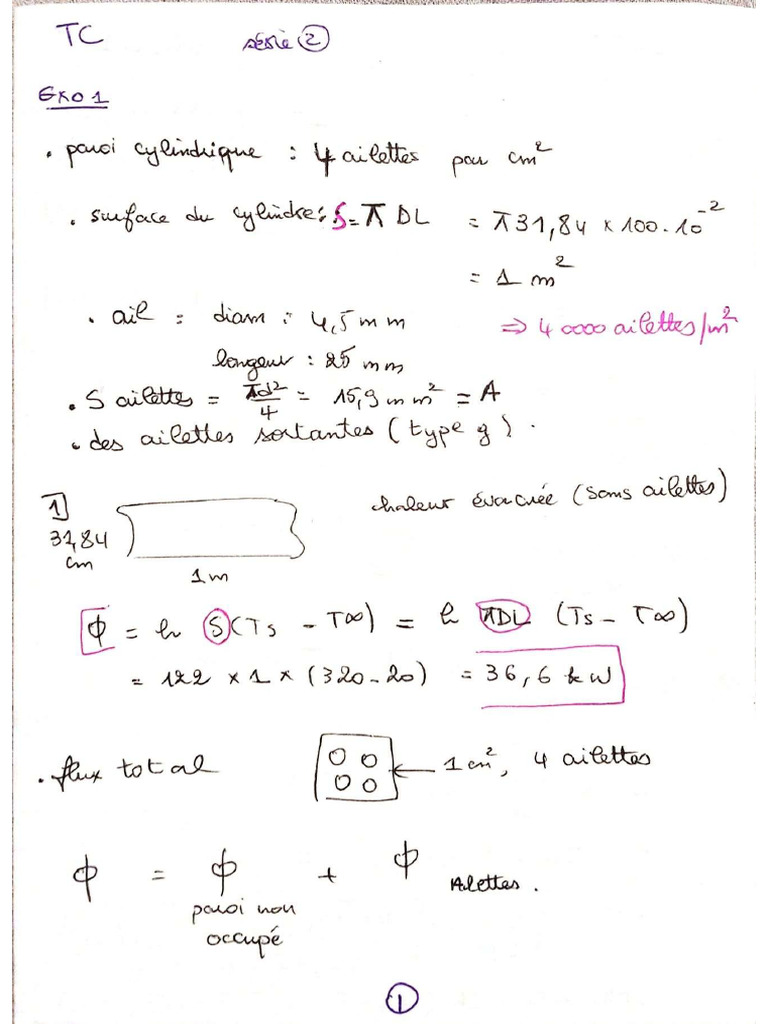 TC
série ②
Exo 1
. paroi cylindrique : 4 ailettes par cm²
. surface du cylindre : S = π DL = π 31,84 × 100.10⁻²
= 1 m²
. ail = diam : 4,5 mm ⇒ 40000 ailettes/m²
longeur : 25 mm
. S ailettes = πd²/4 = 15,9 mm² = A
. des ailettes sortantes (type g).
1) chaleur évacuée (sans ailettes)
31,84
cm
1m
ϕ = h S (Ts - T∞) = h πDL (Ts - T∞)
= 122 × 1 × (320-20) = 36,6 kW
. flux total 1 cm², 4 ailettes
ϕ = ϕ + ϕ Ailettes.
paroi non
occupé
①